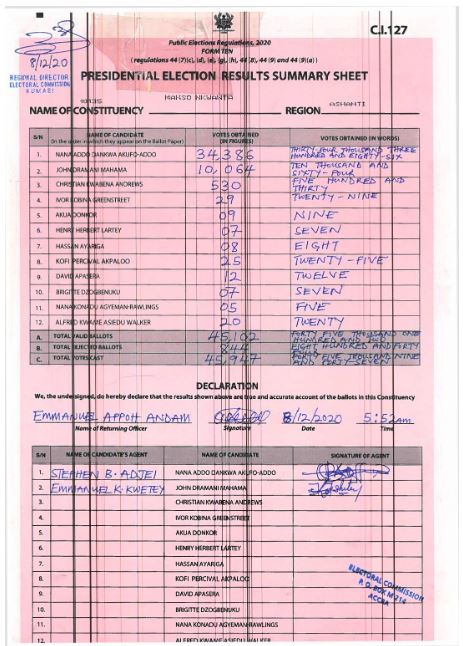 C.I.127
Public Elections Regulations, 2020
FORM TEN
(regulations 44 (7)(c), (d), (e), (g), (h), 44 (8), 44 (9) and 44 (9)(a))
8/12/20
REGIONAL DIRECTOR
ELECTORAL COMMISSION
KUMASI
PRESIDENTIAL ELECTION RESULTS SUMMARY SHEET
NAME OF CONSTITUENCY MANSO NKWANTA REGION ASHANTI
S/N NAME OF CANDIDATE (In the order in which they appear on the Ballot Paper) VOTES OBTAINED (IN FIGURES) VOTES OBTAINED (IN WORDS)
1. NANA ADDO DANKWA AKUFO-ADDO 34,386 THIRTY-FOUR THOUSAND THREE HUNDRED AND EIGHTY-SIX
2. JOHN DRAMANI MAHAMA 10,064 TEN THOUSAND AND SIXTY-FOUR
3. CHRISTIAN KWABENA ANDREWS 530 FIVE HUNDRED AND THIRTY
4. IVOR KOBINA GREENSTREET 29 TWENTY-NINE
5. AKUA DONKOR 09 NINE
6. HENRY HERBERT LARTEY 07 SEVEN
7. HASSAN AYARIGA 08 EIGHT
8. KOFI PERCIVAL AKPALOO 25 TWENTY-FIVE
9. DAVID APASERA 12 TWELVE
10. BRIGITTE DZOGBENUKU 07 SEVEN
11. NANA KONADU AGYEMAN-RAWLINGS 05 FIVE
12. ALFRED KWAME ASIEDU WALKER 20 TWENTY
A. TOTAL VALID BALLOTS 45,102 FORTY FIVE THOUSAND ONE HUNDRED AND TWO
B. TOTAL REJECTED BALLOTS EIGHT HUNDRED AND FORTY
C. TOTAL VOTES CAST 45,947 FORTY FIVE THOUSAND NINE AND FORTY-SEVEN
DECLARATION
We, the undersigned, do hereby declare that the results shown above are true and accurate account of the ballots in this Constituency
EMMANUEL APPOH ANDAM 8/12/2020 5:52am
Name of Returning Officer Signature Date Time
S/N NAME OF CANDIDATE'S AGENT NAME OF CANDIDATE SIGNATURE OF AGENT
1. STEPHEN B. ADJEI NANA ADDO DANKWA AKUFO-ADDO
2. EMMANUEL K. KWETEY JOHN DRAMANI MAHAMA
3. CHRISTIAN KWABENA ANDREWS
4. IVOR KOBINA GREENSTREET
5. AKUA DONKOR
6. HENRY HERBERT LARTEY
7. HASSAN AYARIGA
8. KOFI PERCIVAL AKPALOO
9. DAVID APASERA
10. BRIGITTE DZOGBENUKU
11. NANA KONADU AGYEMAN-RAWLINGS
12. ALFRED KWAME ASIEDU WALKER
ELECTORAL COMMISSION
P. O. BOX M 214
ACCRA